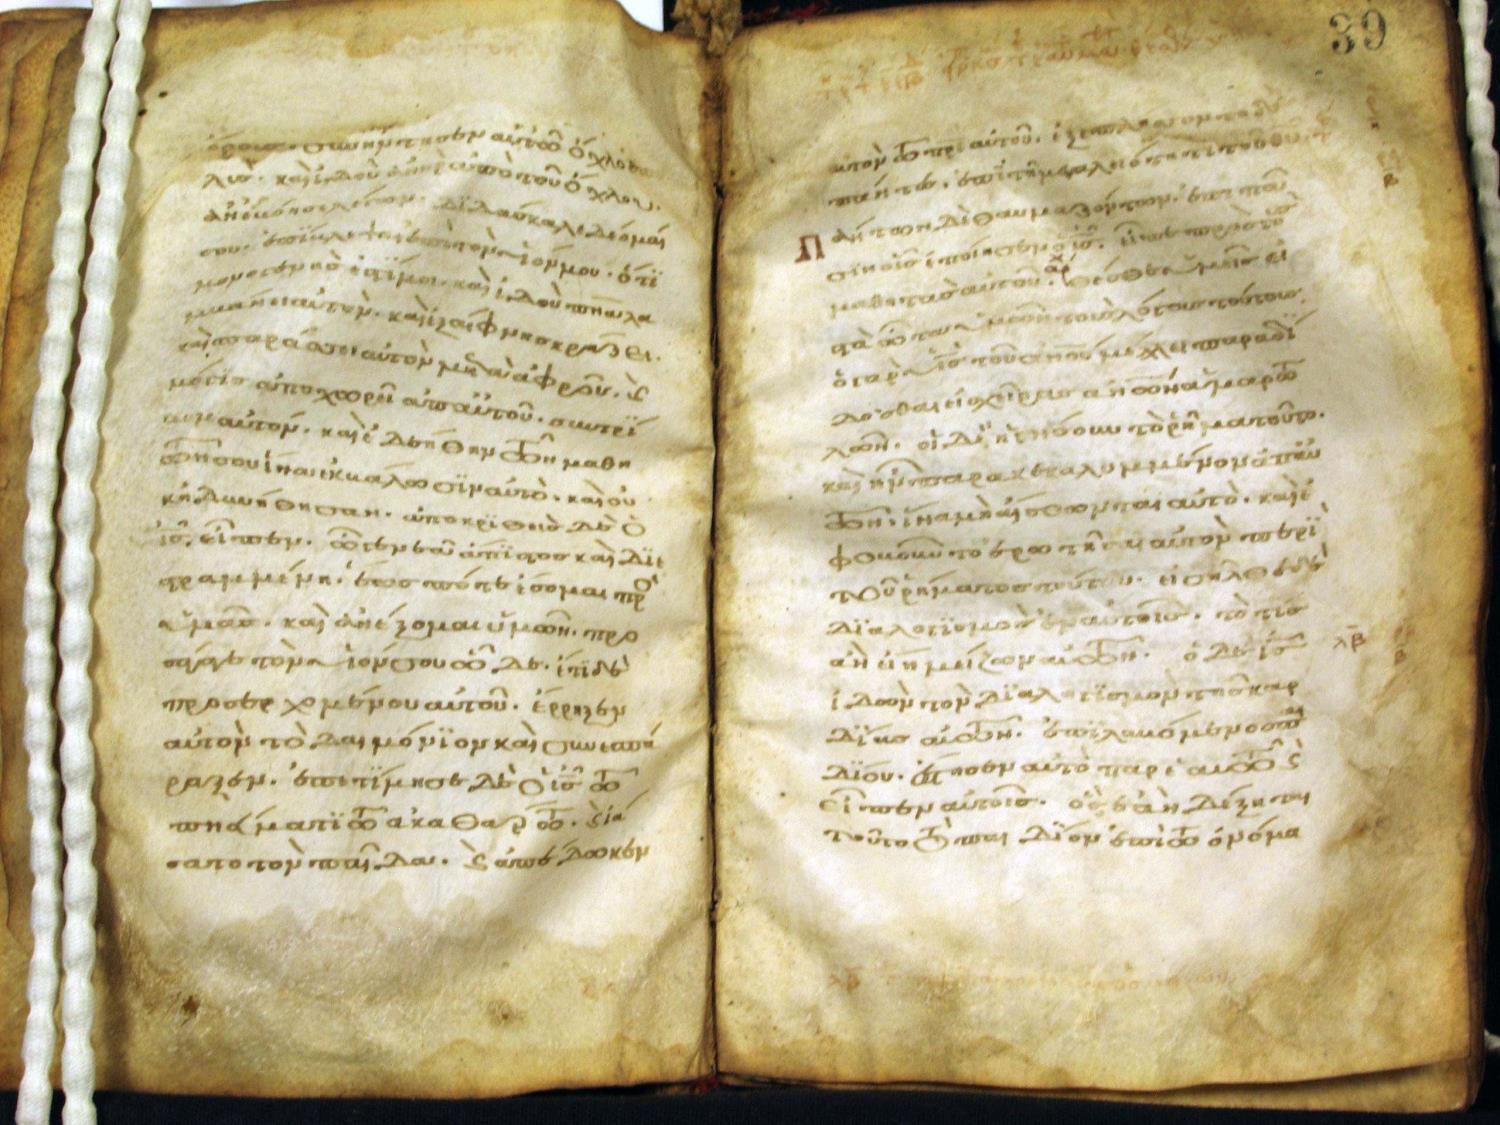 ὄρους. συνήντησεν αὐτῶ ὄχλος πο
λυσ. καὶ ἰδοὺ ἀνὴρ ἀπὸ τοῦ ὄχλου.
ἀνεβόησε λέγων. διδάσκαλε δέομαί
σου. ἐπίβλεψαι ἐπὶ τὸν υἱόν μου. ὅτι
μονογενήσ ἐστί μοι. καὶ ἰδοὺ πν̅α λα
μβάνει αὐτὸν. καὶ ἐξαίφνησ κράζει.
καὶ σπαράσσει αὐτὸν μετὰ ἀφροῦ. ϗ
μόγισ ἀποχωρεῖ ἀπ' αὐτοῦ. συντρί
βων αὐτόν. καὶ ἐδεήθην τῶν μαθη
τῶν σου ἵνα ἐκβάλωσιν αὐτὸ. καὶ οὐ
κ ἠδυνήθησαν. ἀποκριθεὶσ δὲ ὁ
ις̅. εἶπεν. ὦ γενεὰ ἄπιστοσ καὶ διε
στραμμένη. ἕωσ πότε ἔσομαι πρὸ
ὑμᾶσ. καὶ ἀνέξομαι ὑμῶν. προ
σάγαγε τὸν υἱόν σου ὧδε. ἔτι δὲ
προσερχομένου αὐτοῦ. ἔρρηξεν
αὐτὸν τὸ δαιμόνιον καὶ συνεσπά
ραξεν. ἐπετίμησε δὲ ὁ ις̅ τῶ
πν̅ατι τῶ ἀκαθάρτω. ϗ ἰά
σατο τὸν παῖδα. ϗ ἀπέδωκεν
39
αὐτὸν τῶ πρι̅ αὐτοῦ. ἐξεπλήσσοντο δὲ
πάντεσ. ἐπὶ τῆ μεγαλειότητι τοῦ θυ̅.
Πάντων δὲ θαυμαζόντων. ἐπὶ πᾶ
σιν οἷσ ἐποίησεν ὁ ις̅. εἶπε πρὸσ τοὺ
μαθητὰσ αὐτοῦ. θέσθε ὑμεῖσ εἰ
σ τὰ ὦτα ὑμῶν τοὺσ λόγουσ τούτουσ.
ὁ γὰρ υἱὸσ τοῦ ἀνου̅ μέλλει παραδί
δοσθαι εἰσ χεῖρασ ἀνων̅ ἁμαρτω
λῶν. οἱ δὲ ἠγνόουν τὸ ῥῆμα τοῦτο.
καὶ ἦν παρακεκαλυμμένον ἀπ' αὐ
τῶν. ἵνα μὴ αἴσθωνται αὐτὸ. καὶ ἐ
φοβοῦντο ἐρωτῆσαι αὐτὸν περὶ
τοῦ ῥήματοσ τούτου. εἰσῆλθε δὲ
διαλογισμὸσ ἐν αὐτοῖσ. τὸ τίσ
ἂν εἴη μείζων αὐτῶν. ὁ δὲ ις̅
ἰδὼν τὸν διαλογισμὸν τῆσ καρ
δίασ αὐτῶν. ἐπιλαβόμενοσ παι
δίου. ἔστησεν αὐτὸ παρ' ἑαυτῶ ϗ
εἶπεν αὐτοῖσ. ὃσ ἐὰν δέξηται
τοῦτο τὸ παιδίον ἐπὶ τῶ ὀνόμα